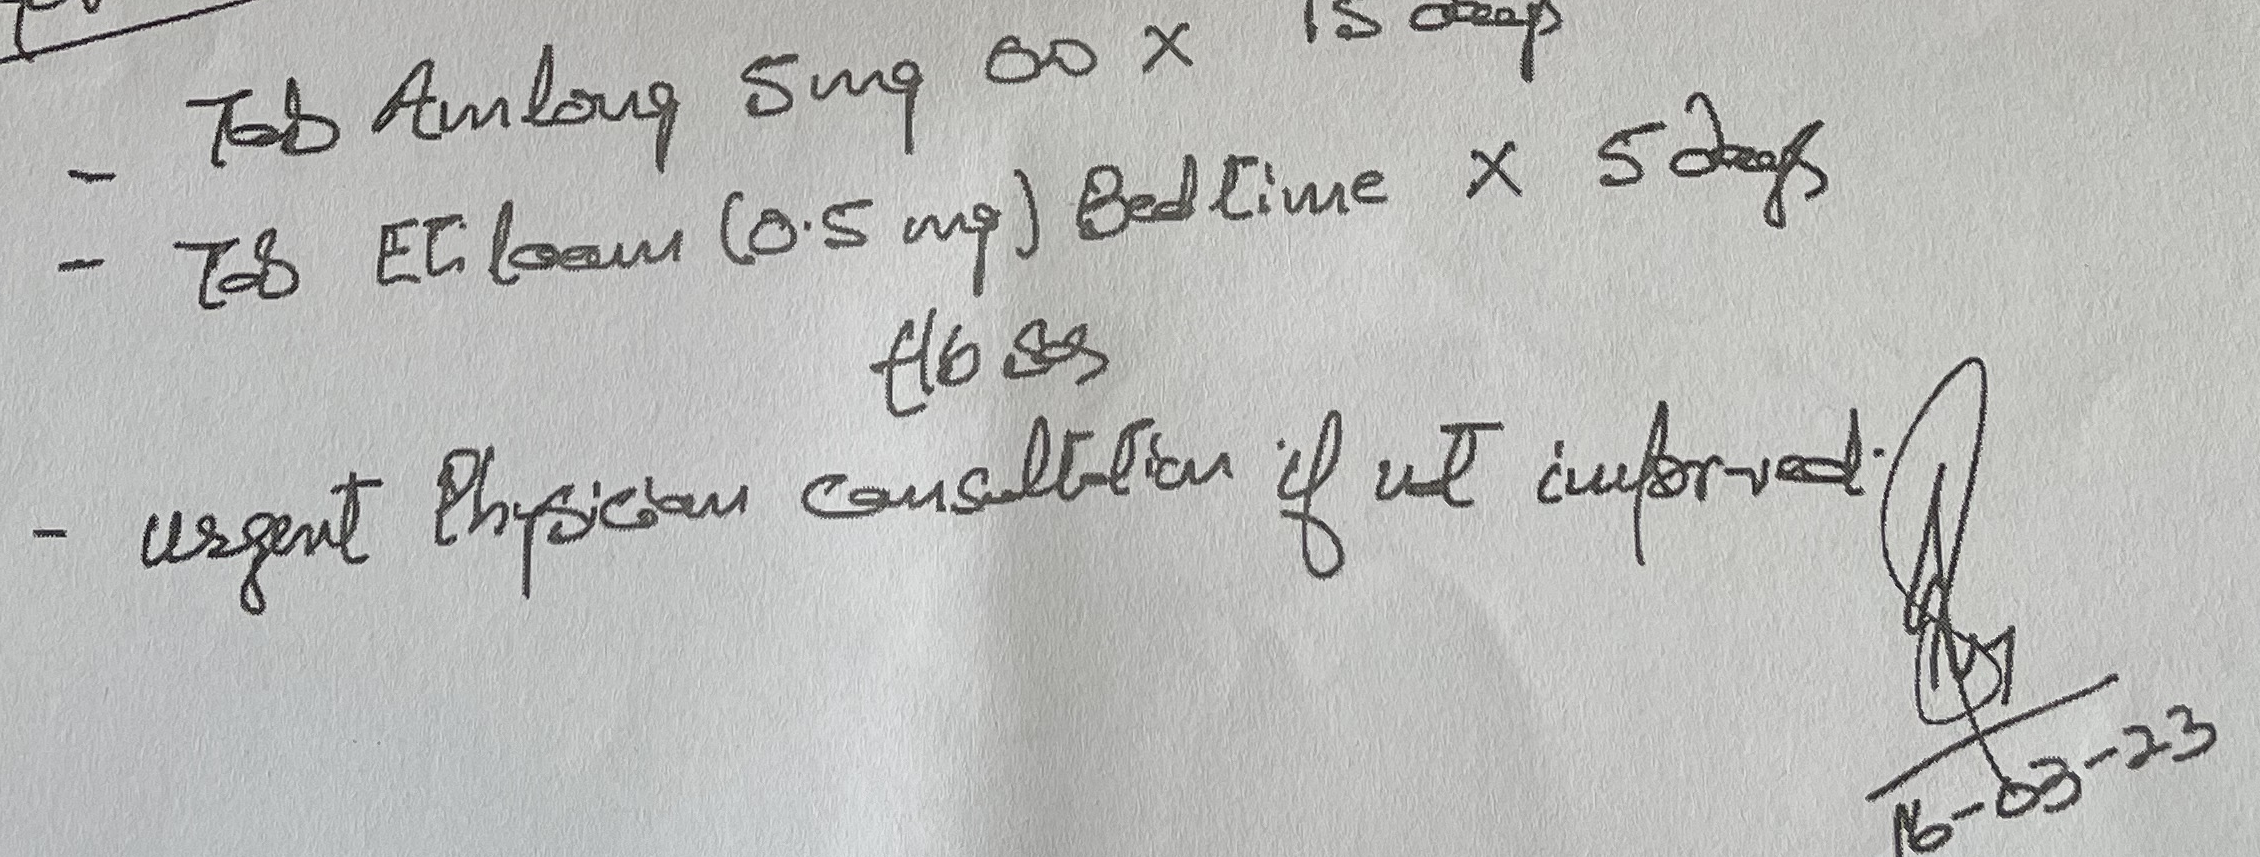 - Tab Amlong 5mg OD x 15 days
- Tab Etiloam (0.5 mg) Bedtime x 5 days
f/b SOS
- urgent Physician consultation if not improved.
16-03-23